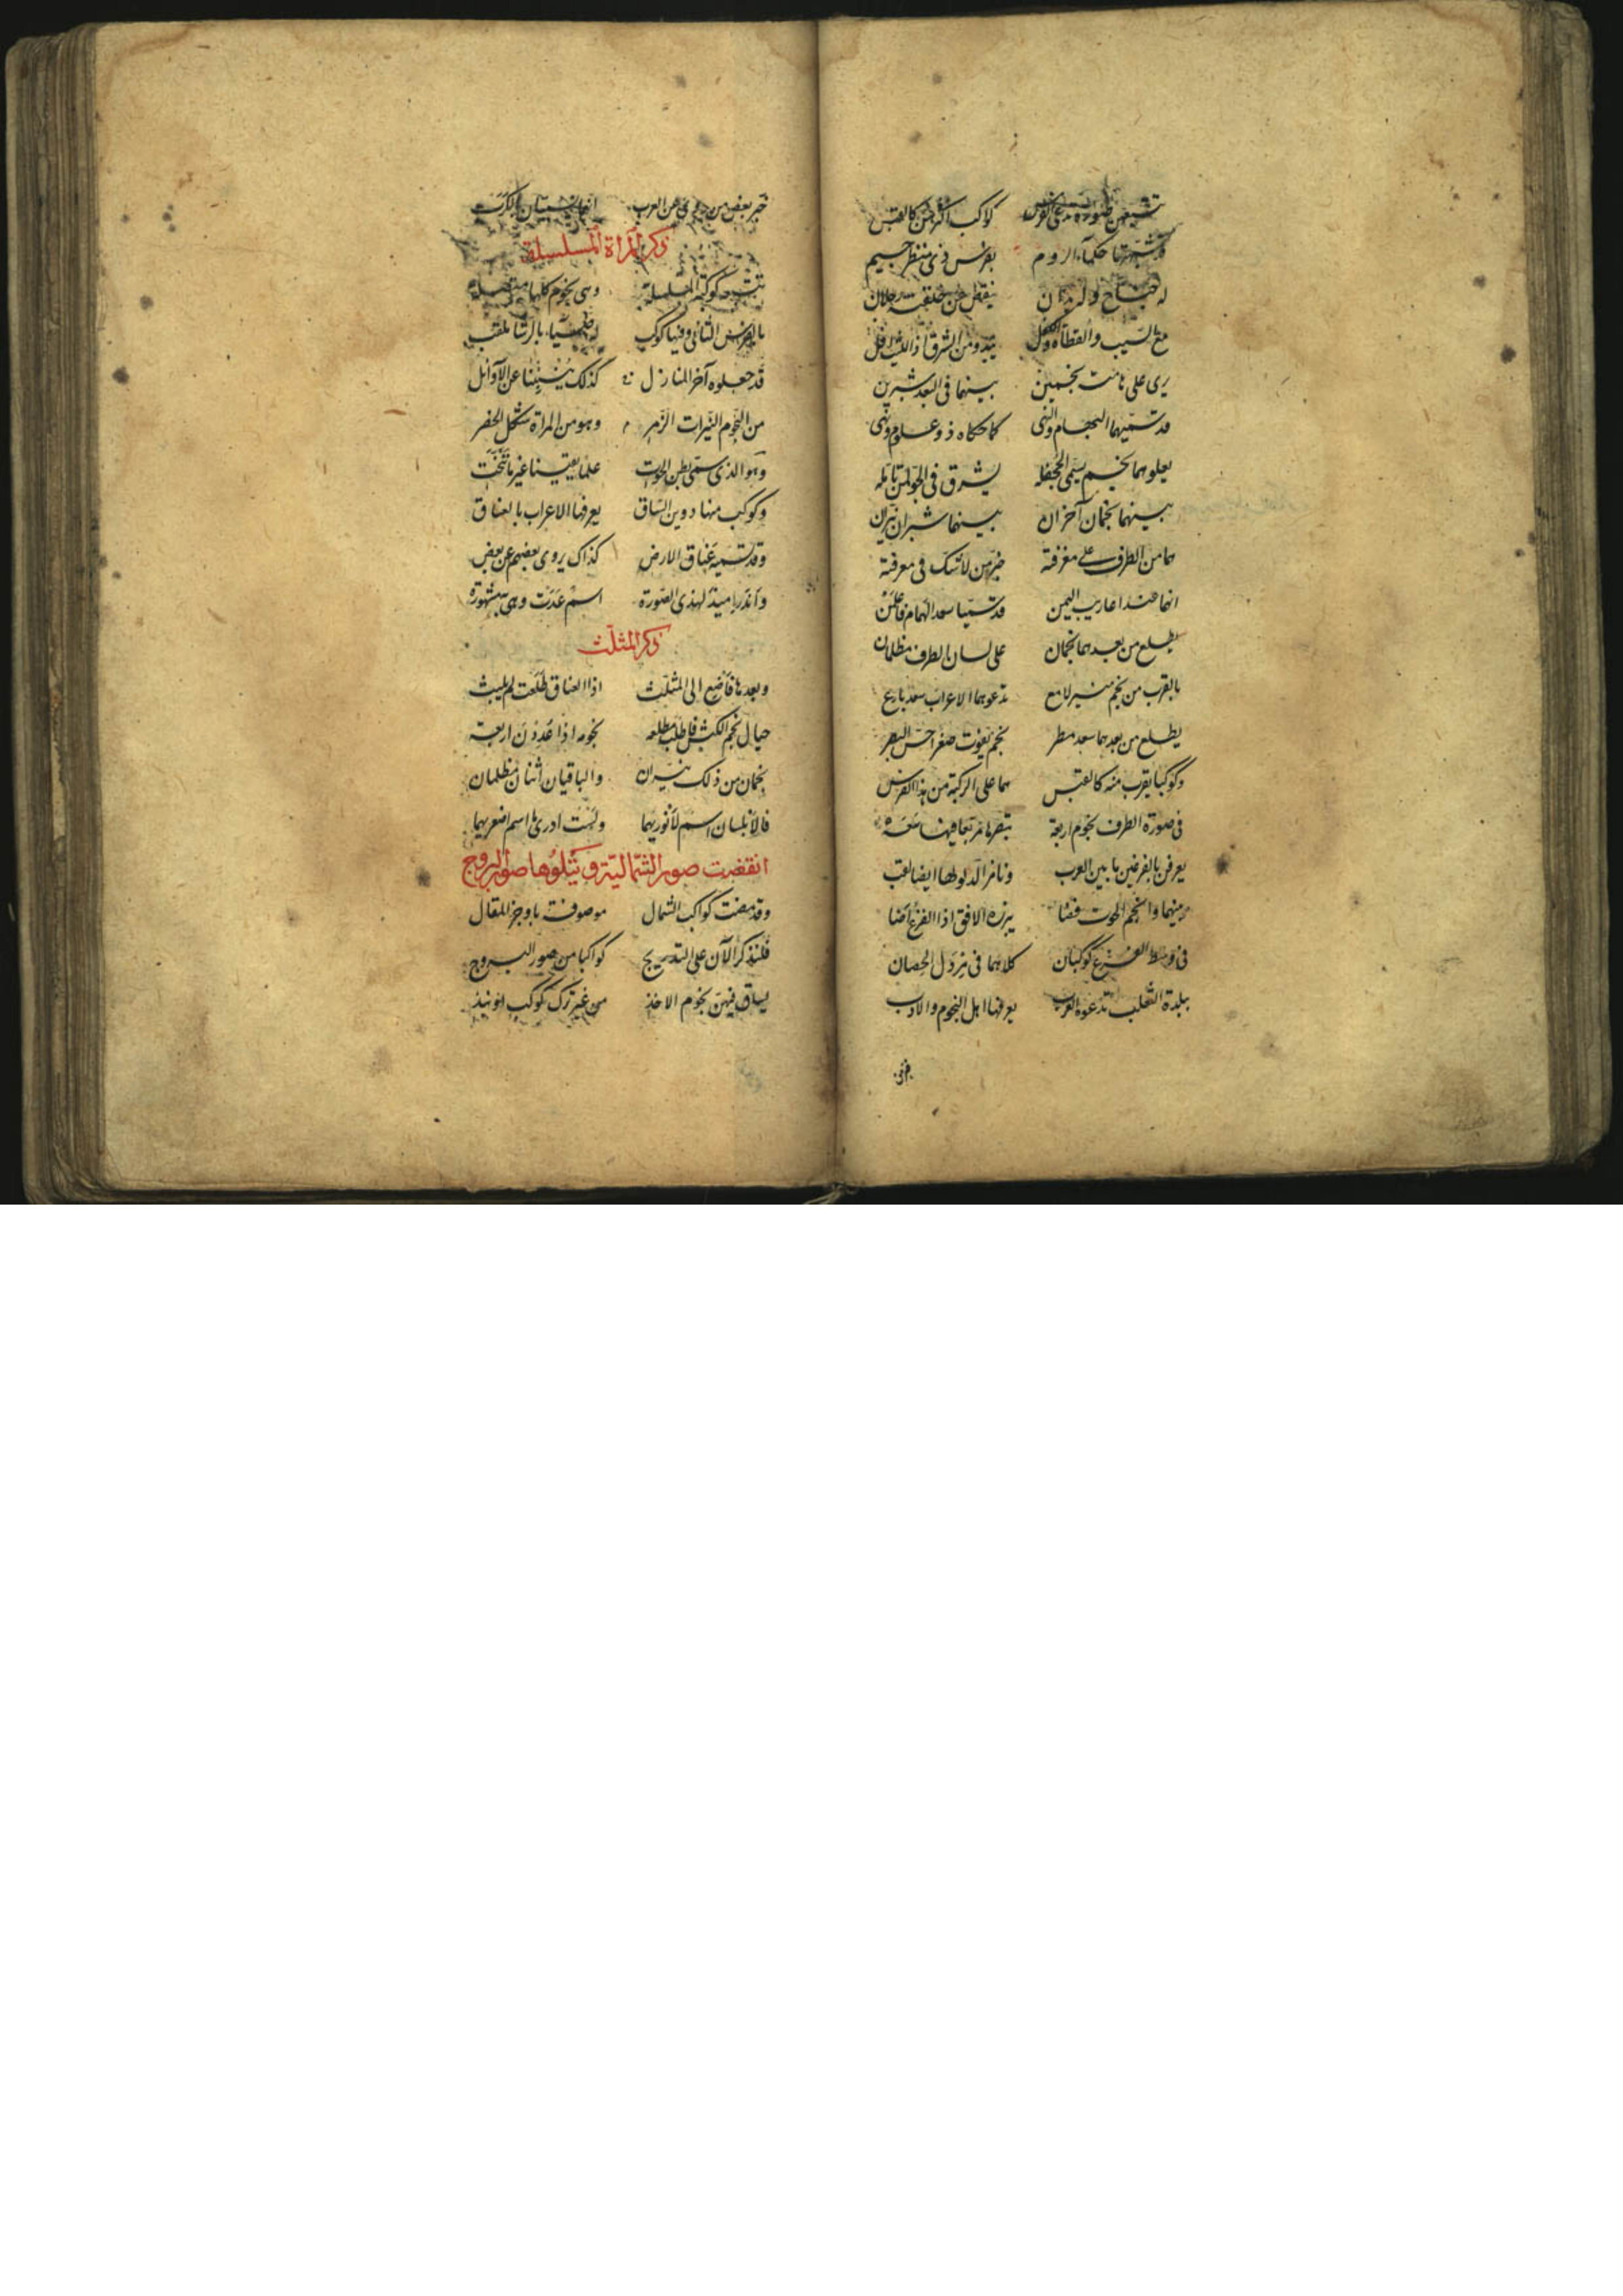 كواكب اكثرهن كالقبس
حكماء الروم بفرس ذى منظر جسيم
له جناح وله ينقص من خلقته رجلان
يبدو من الشرق اذا الليث افل
يرى على هامته نجمين بينهما فى البعد شبرين
قد سميهما البهام والنهى كما حكاه ذو علوم ونهى
يعلوهما نجم يسمى الجحفله يشرق فى الجو لمن تامله
بينهما نجمان آخران بينهما شبران نيران
هما من الطرف على معرفة خبر من لا شك فى معرفة
انهما عند اعاريب اليمن قد سميا سعد الهمام فاعلمن
يطلع من بعدهما نجمان على لسان الطرف مظلمان
بالقرب من نجم منير لامع تدعوهما الاعراب سعد بارع
يطلع من بعدهما سعد مطر نجم يفوت صغرا حس البصر
وكوكبا يقرب منه كالقبس هما على الركبة من هذا الفرس
فى صورة الطرف نجوم اربعة تبصرها مربعا فيها سعة
يعرفن بالفرغين ما بين العرب ونامز الدلو لها ايضا لقب
بينهما وانجم الحوت فضا يبرزه الافق اذا الفرغ اضا
فى وسط الفرغ كوكبان كلاهما فى الحصان
ببلدة الثعلب تدعوه العرب يعرفها اهل النجوم والادب
خبر بعض من روى عن العرب
ذكر المراة المسلسلة
وهى نجوم كلها
الثانى وفيها كوكب بالرشا ملقب
قد جعلوه آخر المنازل كذلك ينبئنا عن الآوائل
من النجوم النيرات الزهر وهو من المراة شكل الخفر
وهو الذى سمى بطن الحوت علما يقينا غير ما تنحت
وكوكب منها دوين الساق يعرفها الاعراب بالعناق
وقد تسميه عناق الارض كذاك يروى بعضهم عن بعض
واندراميذ لهذى الصورة اسم غدت وهى به مشهورة
ذكر المثلث
وبعدها فاضع الى المثلث اذا العناق طلعت لم يلبث
حيال نجم الكبش فاطلب مطلعه نجومه اذا عددن اربعة
نجمان من ذلك نيران والباقيان اثنان مظلمان
فالانيسان اسم لانوريهما ولست ادرى ما اسم اصغريهما
انقضت صور الشمالية ويتلوها صور البروج
وقد مضت كواكب الشمال موصوفة باوجز المقال
فلنذكر الآن على التدريج كواكبا من صور البروج
يساق فيهن نجوم الاخذ من غير ترك كوكب او نبذ